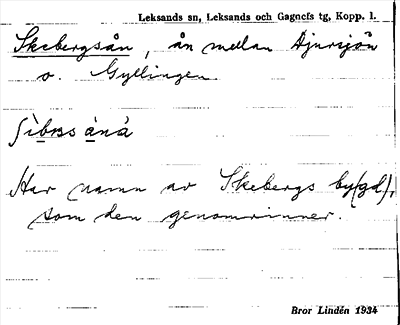 Leksands sn, Leksands och Gagnefs tg, Kopp. l.
Skebergsån, ån mellan Djursjön
o. Gyllingen.
ʃìbɷss ànà
Har namn av Skebergs by(gd),
som den genomrinner.
Bror Lindén 1934